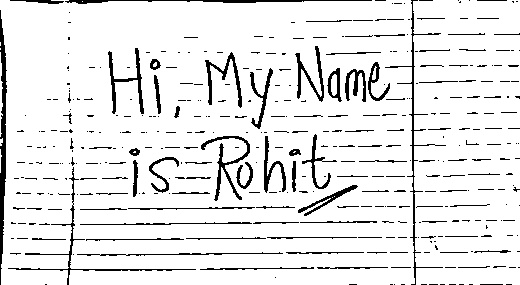 Hi, My Name
is Rohit